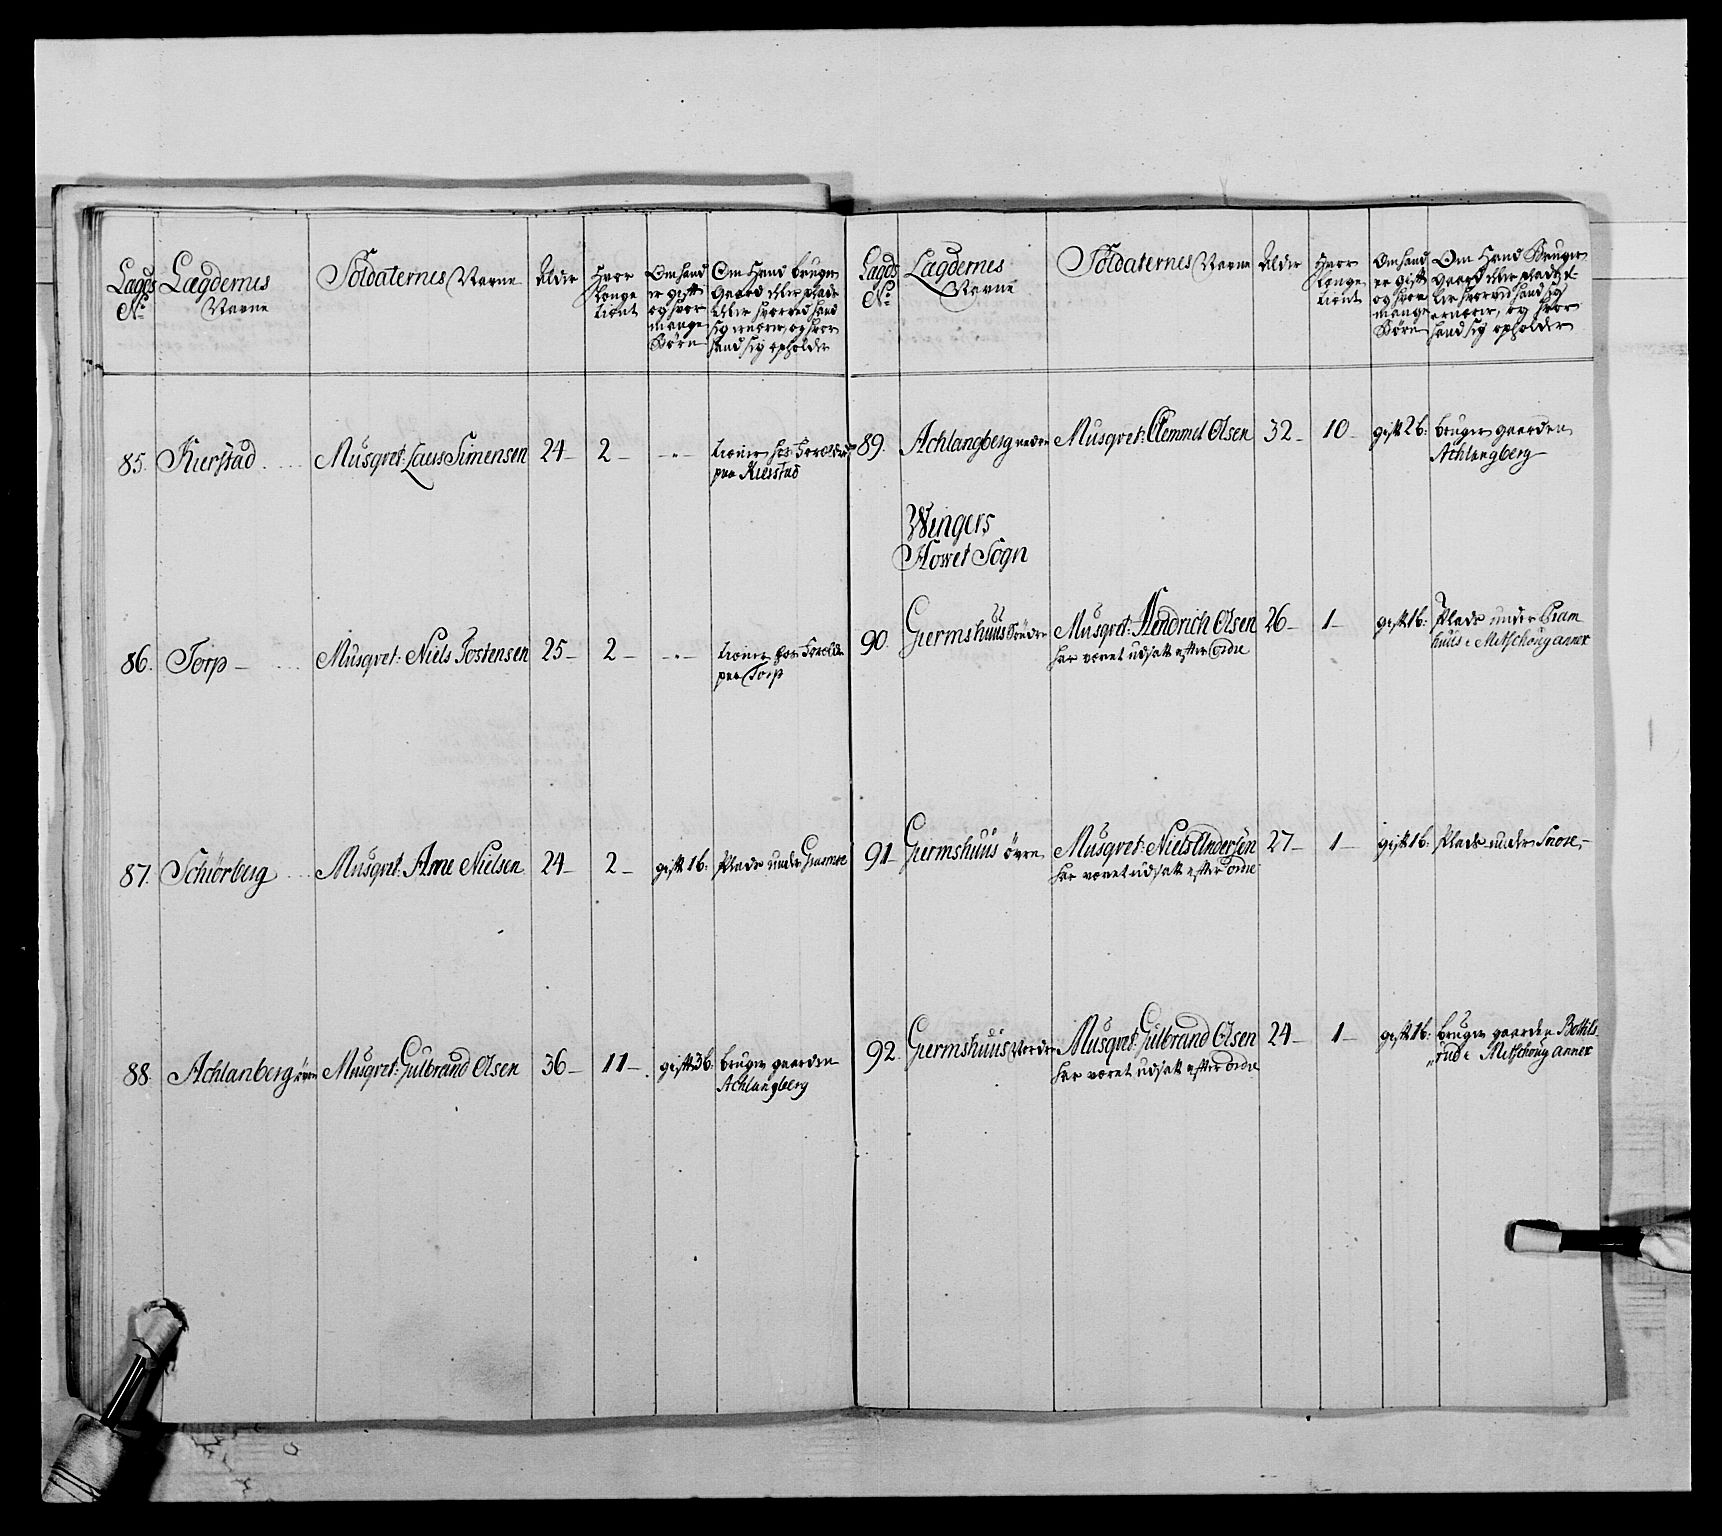 Lægds No. Lægdernes Navne Soldaternes Navne Alder Hvor længe tient Om hand er gift og hvor mange Børn Om Hand bruger Gaard eller plads eller hvorved hand sig ernærer, og hvor hand sig opholder
85. Kierstad Musqret. Laus Simensen 24 2 tiener hos Forældre
paa Kierstad
86. Torp Musqvet. Niels Tostensen 25 2 tiener hos Foræld:
paa Torp
87. Schiörberg Musqvet. Arne Nielsen 24 2 gift 1 b: Plads under
88. Achlanberg øvre Musqvet. Gulbrand Olsen 36 11 gift 3 b: bruger gaarden
Achlangberg
Lægds No. Lægdernes Navne Soldaternes Navne Alder Hvor længe tient Om hand er gift og hvor mange Børn Om Hand Bruger gaard eller plads eller hvorved hand sig ernærer, og hvor hand sig opholder
89. Achlangberg nedre Musqvet. Clemmet Olsen 32 10 gift 2 b: bruger gaarden
Achlangberg
Wingers
Howet Sogn
90. Giermshuus Søndre Musqvet. Hendrich Olsen 26 1 gift 1 b: Plads under
har været udsatt efter Ordre huus i Mitschoug annex
91 Giermshuus øvre Musqvet. Niels Andersön 27 1 gift 1 b: Plads under Snore,
har været udsatt efter Ordre
92. Giermshuus Nordre Musqvet. Gulbrand Olsen 24 1 gift 1 b: bruger gaarden Bottils
har været udsatt efter Ordre rud i Mitschoug annex